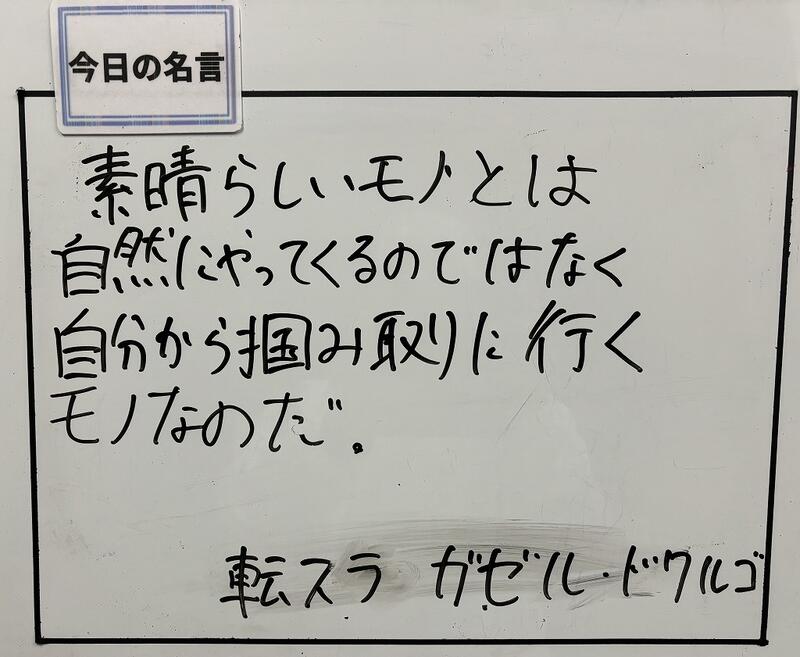 今日の名言
素晴らしいモノとは
自然にやってくるのではなく
自分から掴み取りに行く
モノなのだ.
転スラ ガゼル・ドワルゴ